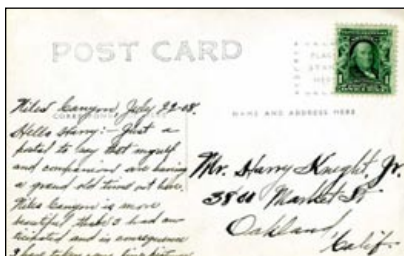 POST CARD
PLACE
STAMP
HERE
1
1
ONE CENT
CORRESPONDENCE
NAME AND ADDRESS HERE
Niles Canyon, July 22-08.
Hello Harry:- Just a
postal to say that myself
and companion are having
a grand old time out here.
Niles Canyon is more
beautiful than I had an-
ticipated and in consequence
I have taken some
Mr. Harry Knight, Jr.
3800 Market St
Oakland,
Calif.